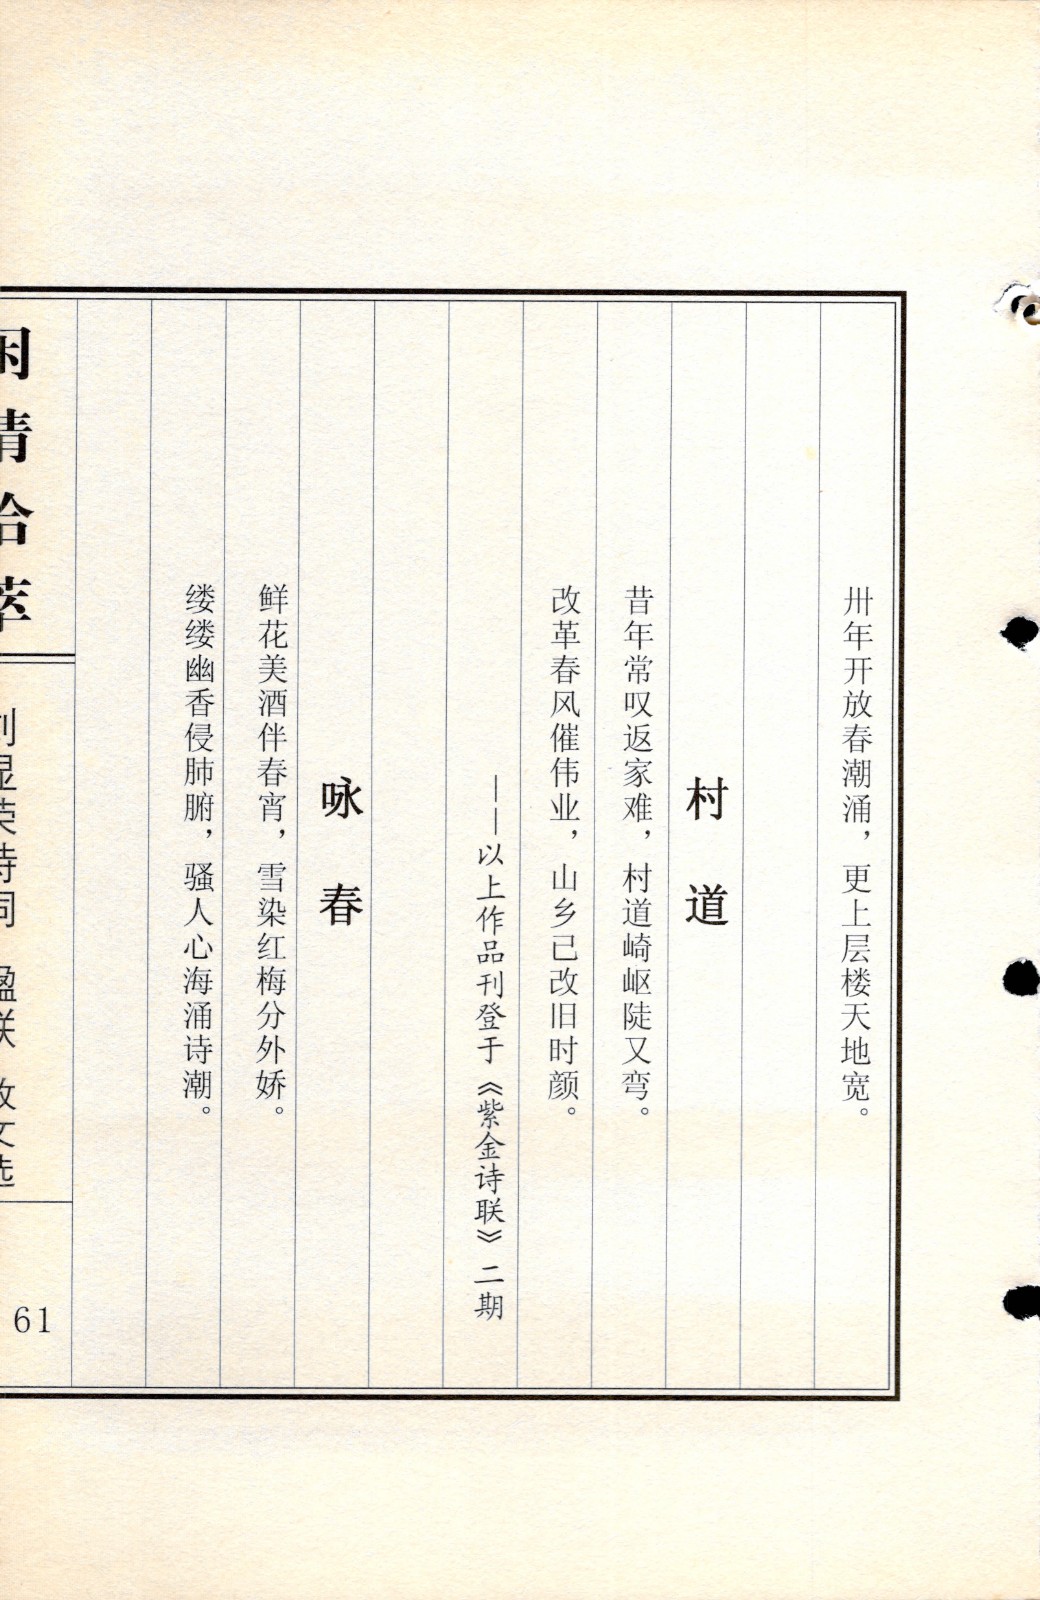 卅年开放春潮涌，更上层楼天地宽。
村道
昔年常叹返家难，村道崎岖陡又弯。
改革春风催伟业，山乡已改旧时颜。
——以上作品刊登于《紫金诗联》二期
咏春
鲜花美酒伴春宵，雪染红梅分外娇。
缕缕幽香侵肺腑，骚人心海涌诗潮。
情拾萃
刘显荣诗词 楹联 散文选
61